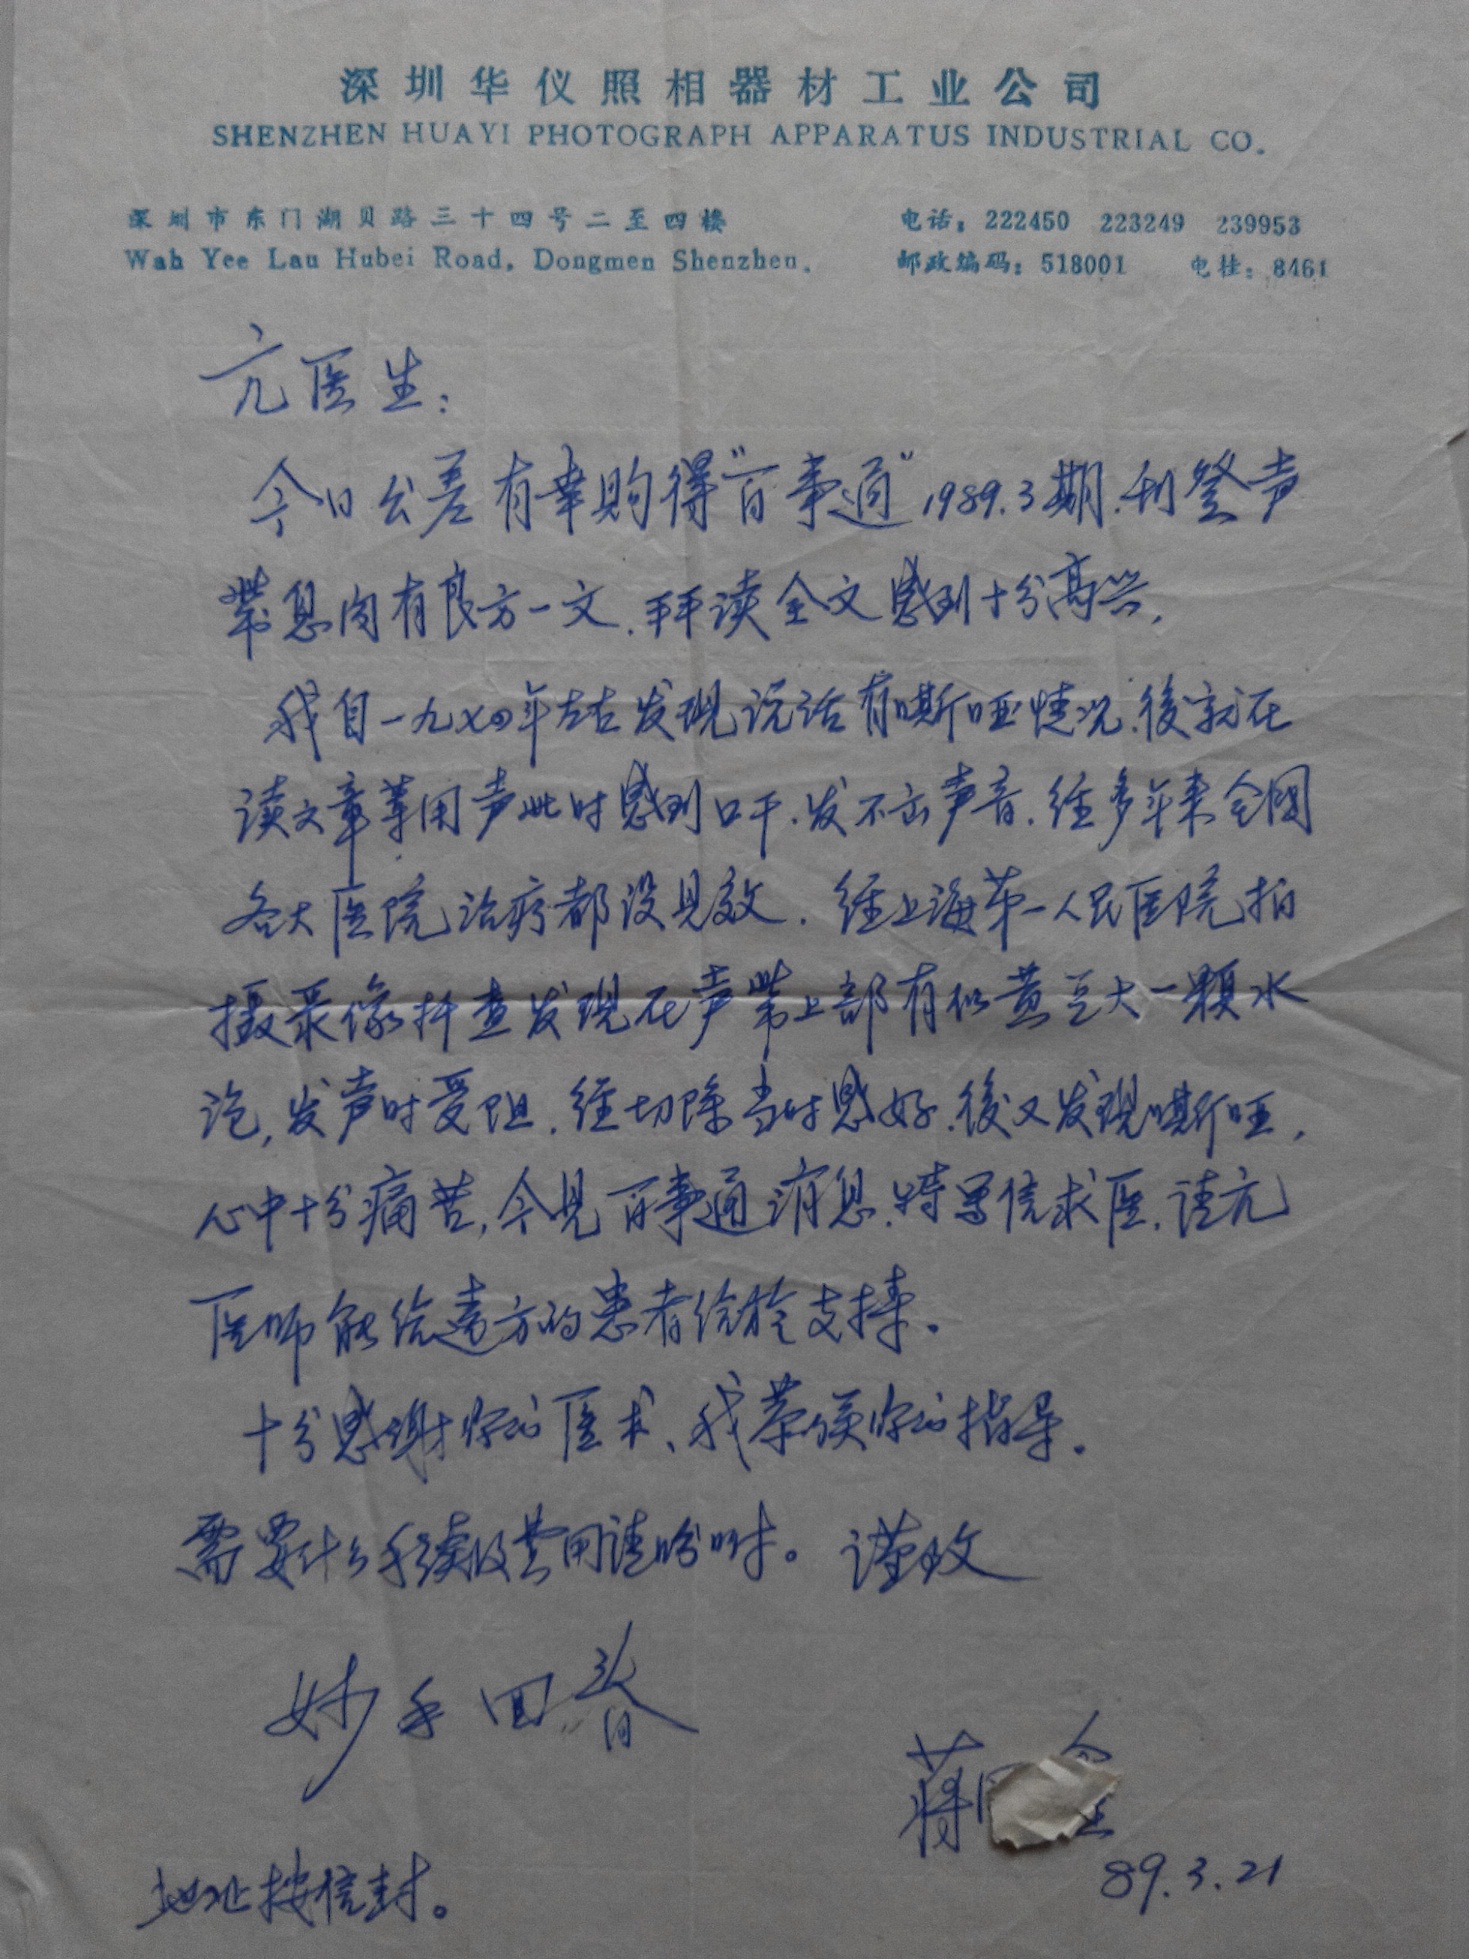 深圳华仪照相器材工业公司
SHENZHEN HUAYI PHOTOGRAPH APPARATUS INDUSTRIAL CO.
深圳市东门湖贝路三十四号二至四楼 电话：222450 223249 239953
Wah Yee Lau Hubei Road, Dongmen Shenzhen. 邮政编码：518001 电挂：8461
亢医生：
今日公差有幸购得"百事通"1989.3期.刊登声
带息肉有良方一文.拜读全文感到十分高兴,
我自一九七四年左右发现说话有嘶哑情况.後就在
读文章等用声此时感到口干.发不出声音.经多年来全國
各大医院治疗都没见效.经上海第一人民医院拍
摄录像抖查发现在声带上部有似黄豆大一颗水
泡,发声时受阻.经切除当时感好.後又发现嘶哑,
心中十分痛苦,今见百事通消息.特写信求医.请亢
医师能给远方的患者给於支持。
十分感谢你的医术、我恭候你的指导。
需要什么手续及费用请吩咐。谨致
妙手回春
蒋
89.3.21
地址按信封。